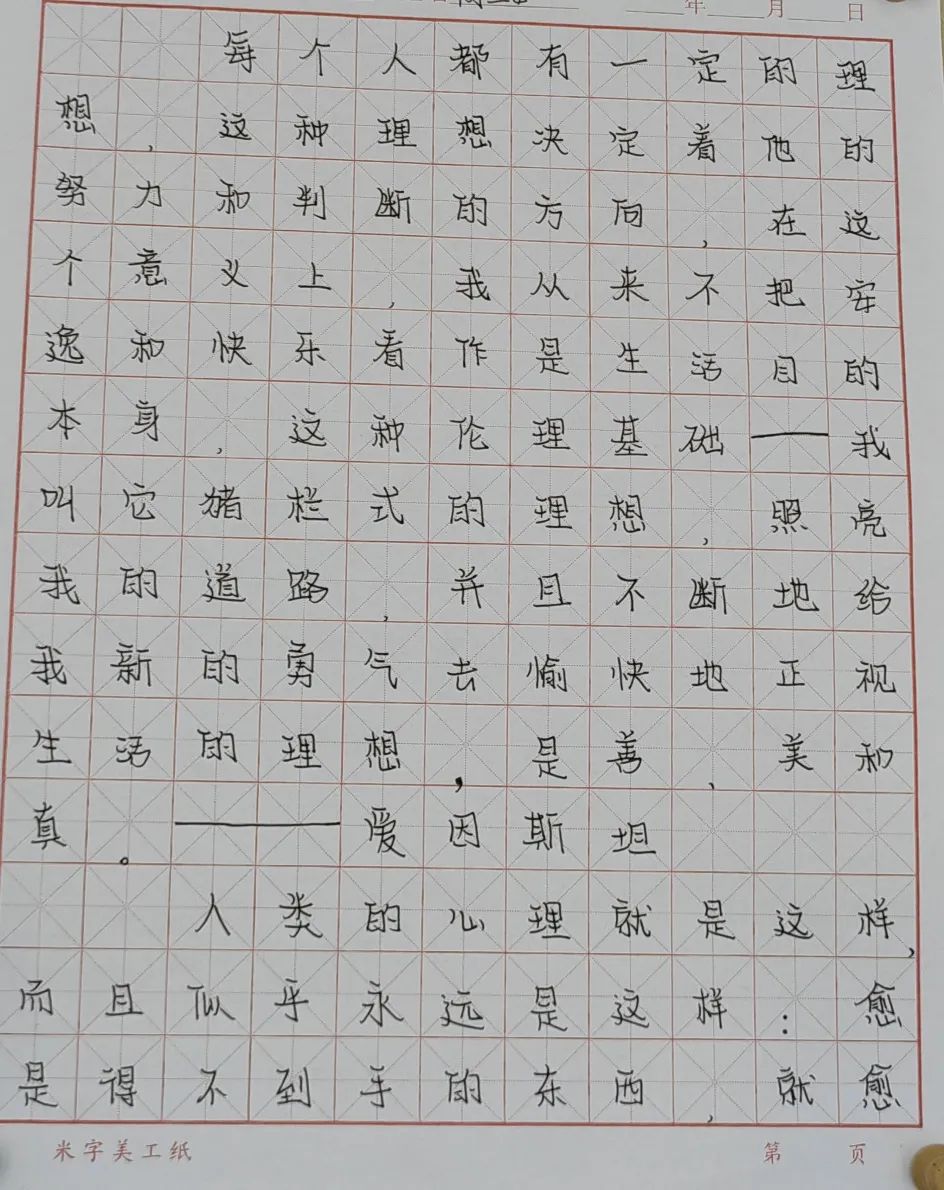 年 月 日
每个人都有一定的理
想，这种理想决定着他的
努力和判断的方向，在这
个意义上，我从来不把安
逸和快乐看作是生活目的
本身，这种伦理基础——我
叫它猪栏式的理想，照亮
我的道路，并且不断地给
我新的勇气去愉快地正视
生活的理想，是善、美和
真。——爱因斯坦
人类的心理就是这样，
而且似乎永远是这样：愈
是得不到手的东西，就愈
米字美工纸 第 页